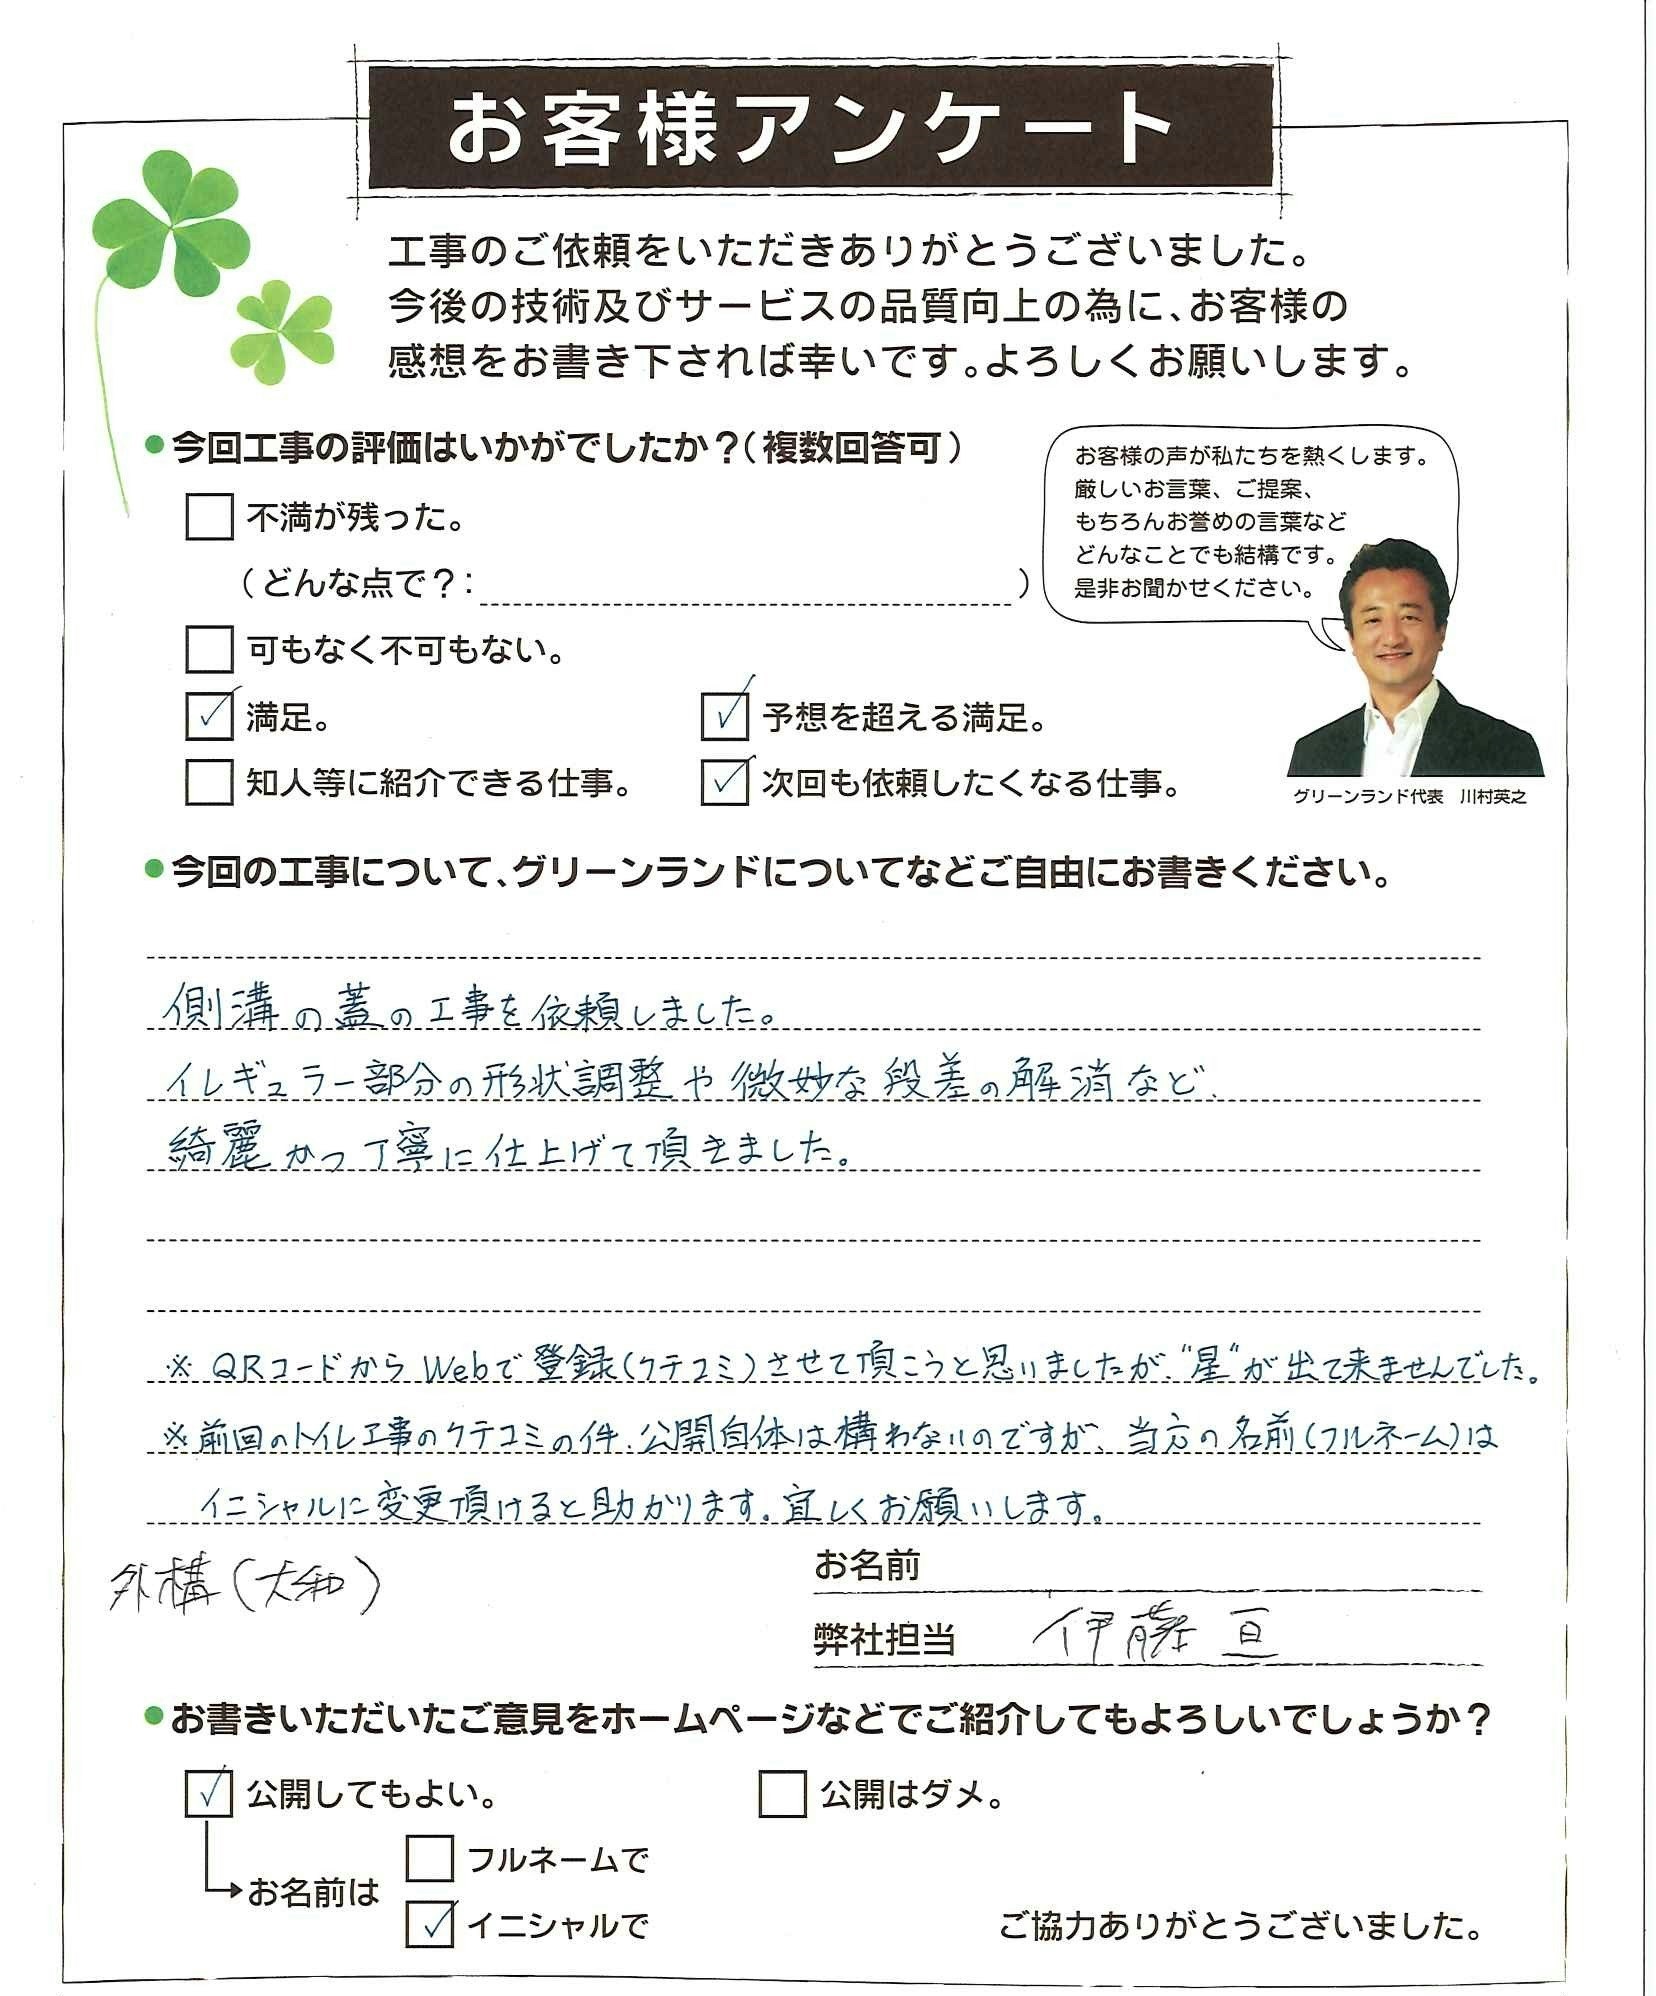 お客様アンケート
工事のご依頼をいただきありがとうございました。
今後の技術及びサービスの品質向上の為に、お客様の
感想をお書き下されば幸いです。よろしくお願いします。
●今回工事の評価はいかがでしたか？（複数回答可）
不満が残った。
（どんな点で？：　）
可もなく不可もない。
満足。
予想を超える満足。
知人等に紹介できる仕事。
次回も依頼したくなる仕事。
お客様の声が私たちを熱くします。
厳しいお言葉、ご提案、
もちろんお誉めの言葉など
どんなことでも結構です。
是非お聞かせください。
グリーンランド代表　川村英之
●今回の工事について、グリーンランドについてなどご自由にお書きください。
側溝の蓋の工事を依頼しました。
イレギュラー部分の形状調整や微妙な段差の解消など、
綺麗かつ丁寧に仕上げて頂きました。
※QRコードからWebで登録（クチコミ）させて頂こうと思いましたが、"星"が出て来ませんでした。
※前回のトイレ工事のクチコミの件、公開自体は構わないのですが、当方の名前（フルネーム）は
イニシャルに変更頂けると助かります。宜しくお願いします。
外構（大和）
お名前
弊社担当　伊藤 亘
●お書きいただいたご意見をホームページなどでご紹介してもよろしいでしょうか？
公開してもよい。
公開はダメ。
お名前は
フルネームで
イニシャルで
ご協力ありがとうございました。